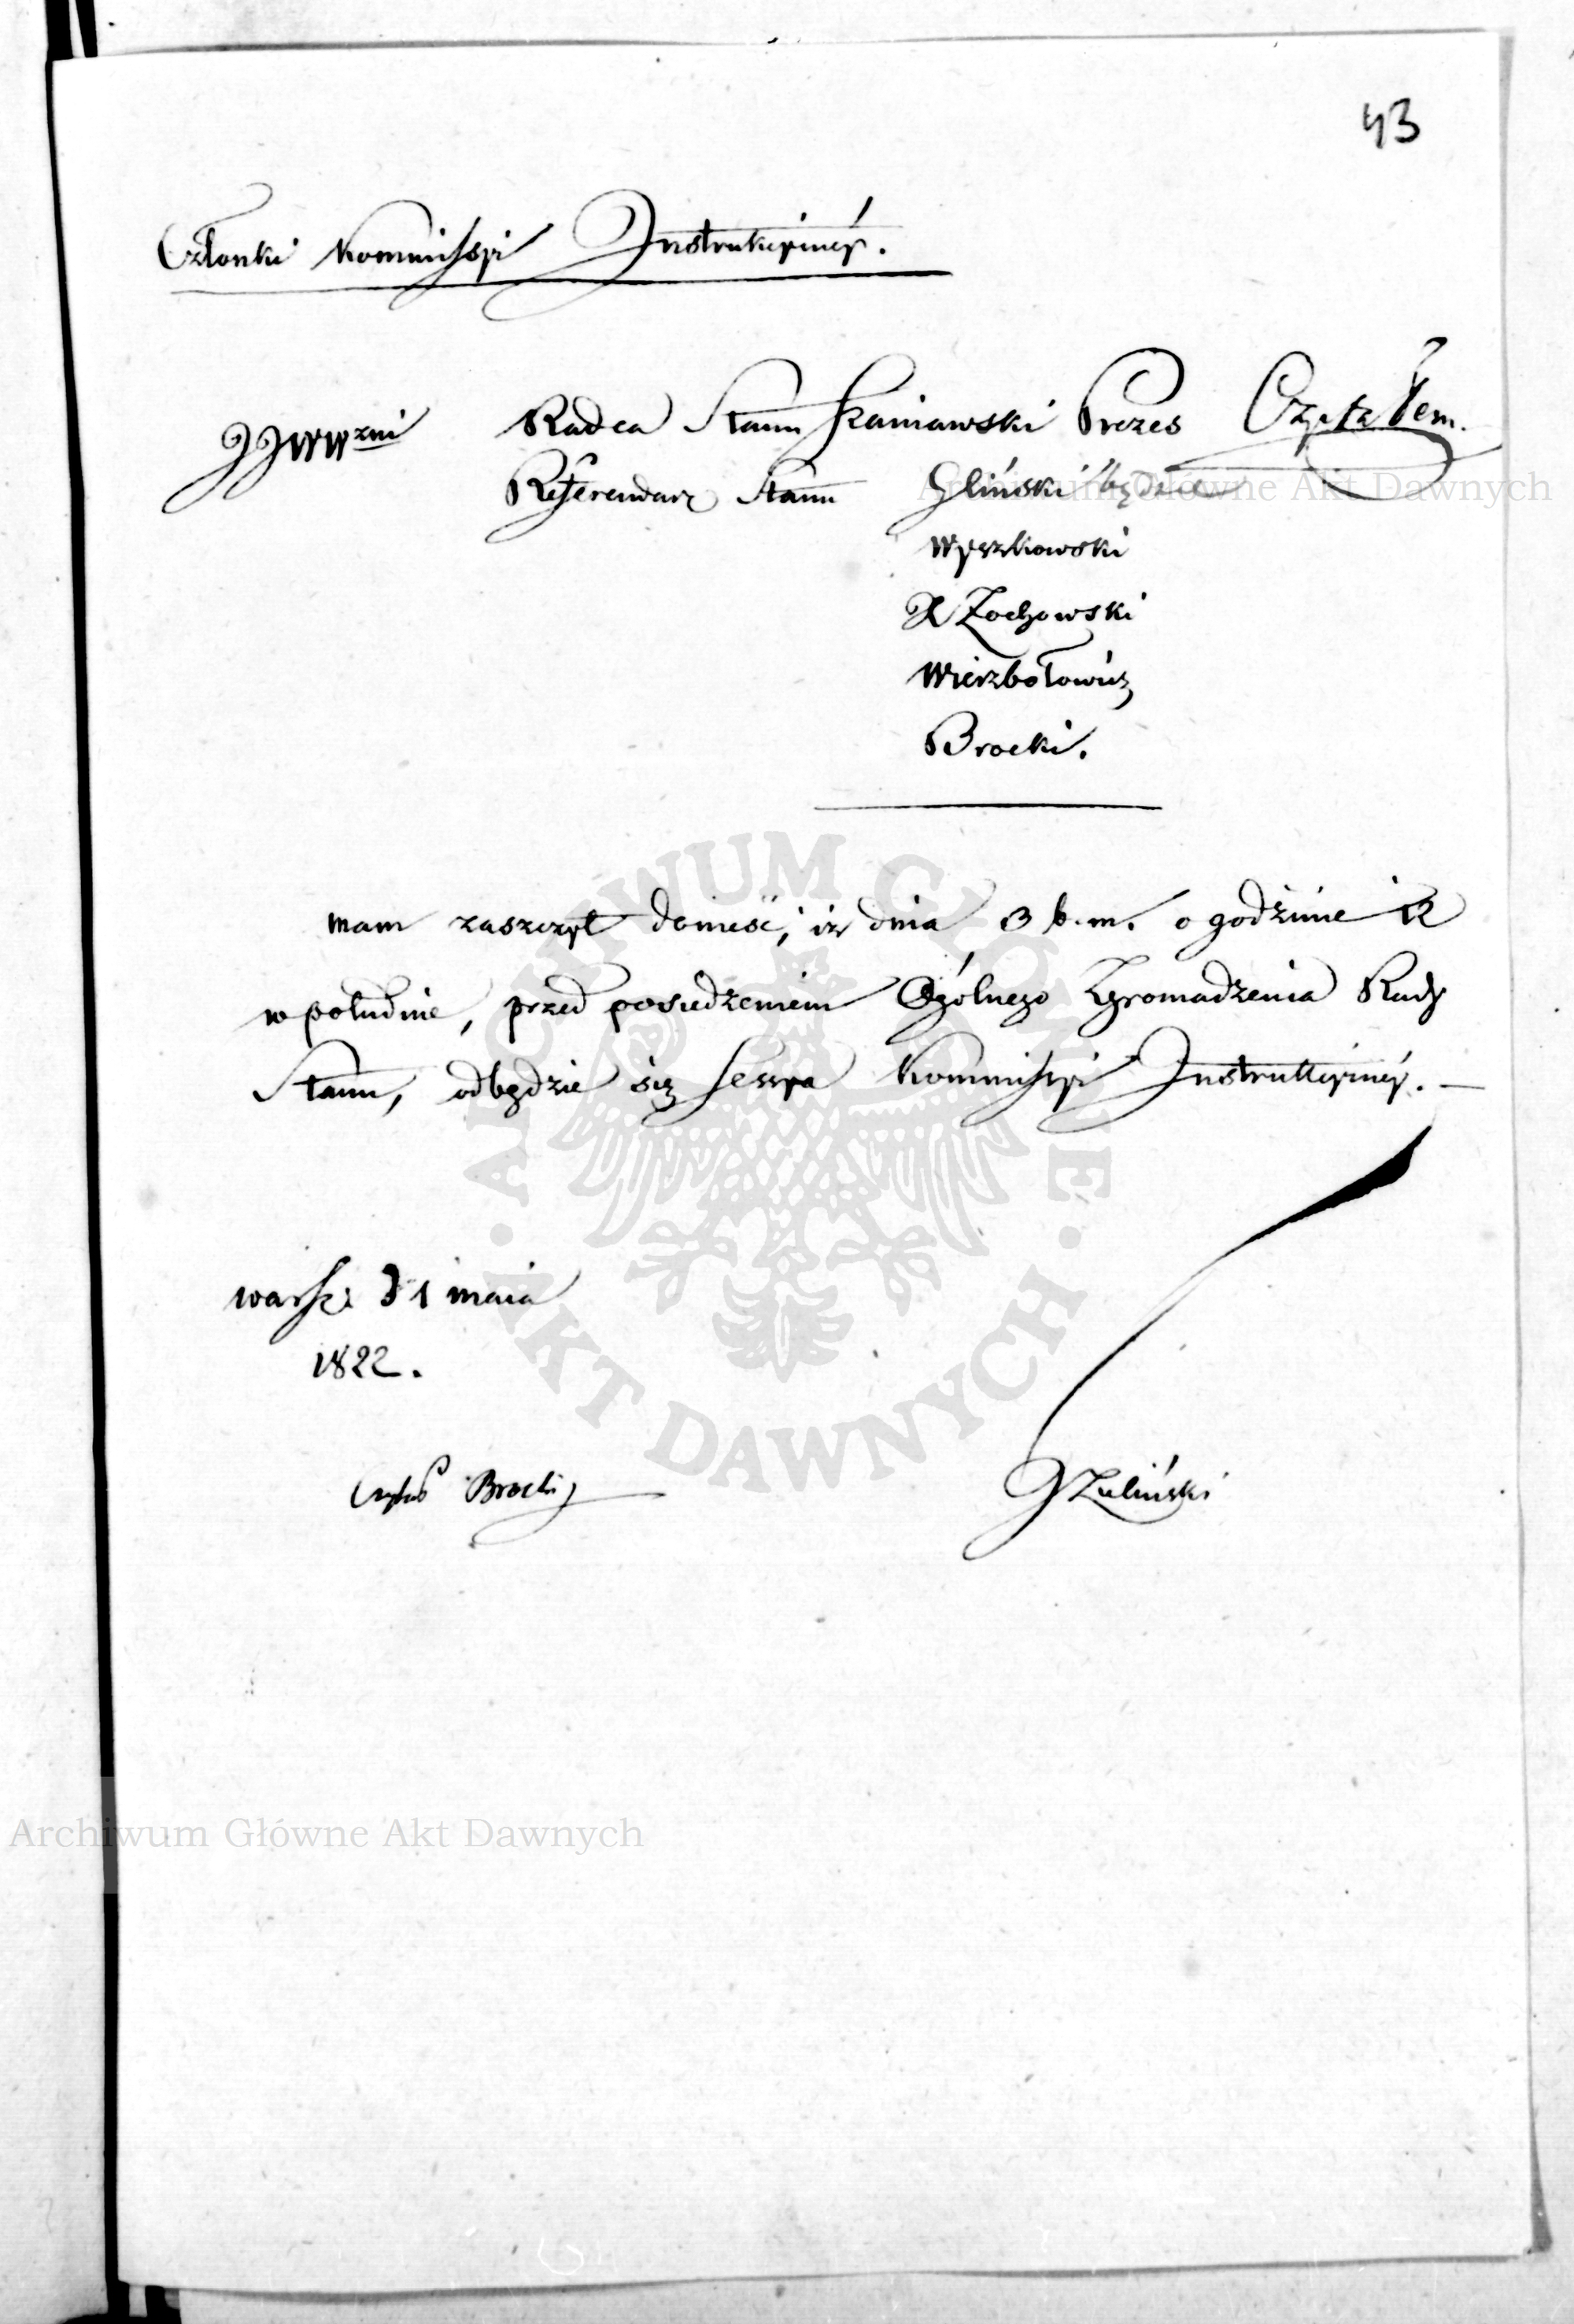 43
Członki Kommissyi Instrukcyiney.
JJWWzni Radca Stanu Szaniawski Prezes Czytałem.
Referendarz Stanu Gliński będzie
Wyszkowski
X Żochowski
Wierzbołowicz
Brocki.
mam zaszczyt donieść, iż dnia 3 b. m. o godzinie 12
w południe, przed posiedzeniem Ogólnego Zgromadzenia Rady
Stanu, odbędzie się Sessya Kommissyi Instrukcyiney. —
Warsz: d 1 maia
1822.
Brocki
Zieliński
Archiwum Główne Akt Dawnych
Archiwum Główne Akt Dawnych
ARCHIWUM GŁÓWNE AKT DAWNYCH